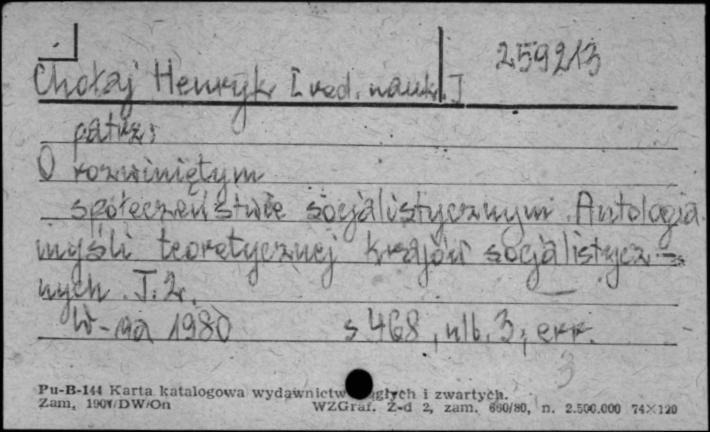 259213
Chołaj Henryk [red. nauk.]
patrz:
O rozwiniętym
społeczeństwie socjalistycznym. Antologia
myśli teoretycznej krajów socjalistycz-
nych. T. 2.
W-wa 1980 s 468, nlb. 3, err.
3
Pu-B-144 Karta katalogowa wydawnictw ciągłych i zwartych.
Zam, 190 /DW/On WZGraf. Z-d 2, zam. 660/80, n. 2.500.000 74×120